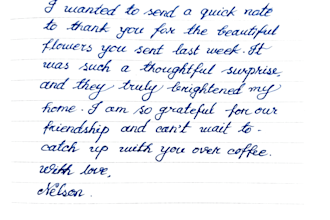 I wanted to send a quick note
to thank you for the beautiful
flowers you sent last week. It
was such a thoughtful surprise,
and they truly brightened my
home. I am so grateful for our
friendship and can't wait to -
catch up with you over coffee.
With love,
Nelson.